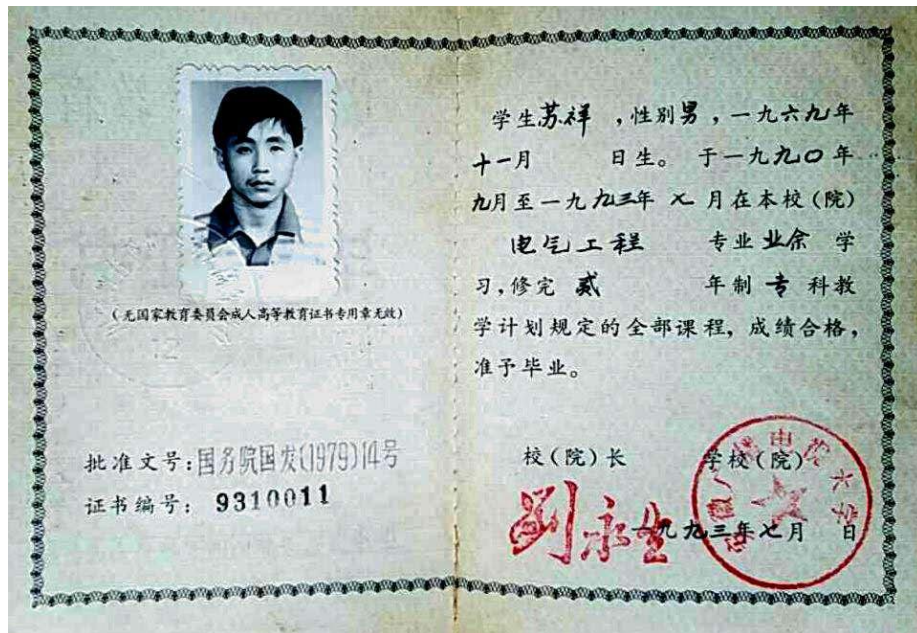 (无国家教育委员会成人高等教育证书专用章无效)
批准文号:国务院国发(1979)14号
证书编号: 9310011
学生苏祥 ,性别男,一九六九年
十一月 日生。 于一九九〇年
九月至一九九三年 七 月在本校(院)
电气工程 专业业余 学
习,修完 贰 年制 专 科教
学计划规定的全部课程, 成绩合格,
准予毕业。
校(院)长 学校(院)
刘永生
一九九三年七月 日